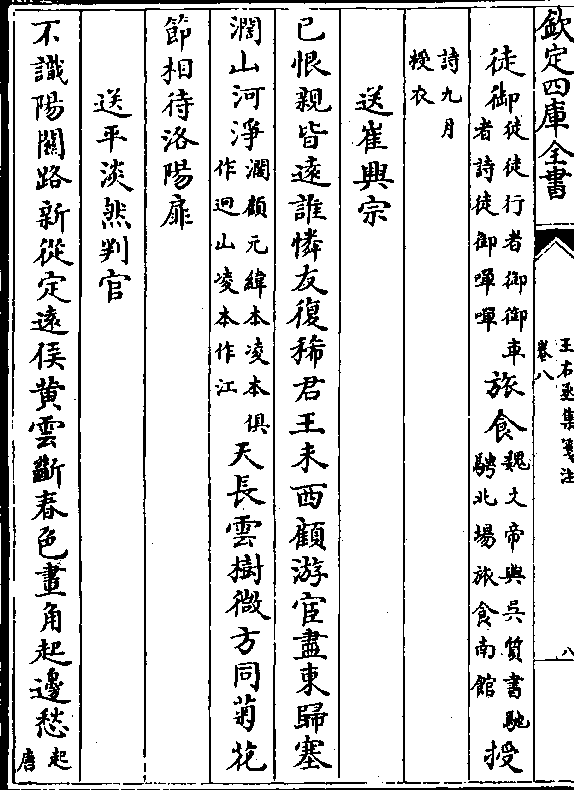 欽定四庫全書
王右丞集箋注
卷八
八
徒御徒徒行者御御車
者詩徒御嘽嘽旅食魏文帝與吳質書馳
騁北場旅食南館授
詩九月
授衣
送崔興宗
已恨親皆遠誰憐友復稀君王未西顧游宦盡東歸塞
濶山河淨濶顧元緯本凌本俱
作迥山凌本作江天長雲樹微方同菊花
節相待洛陽扉
送平淡然判官
不識陽關路新從定遠侯黄雲斷春色畫角起邊愁起
唐